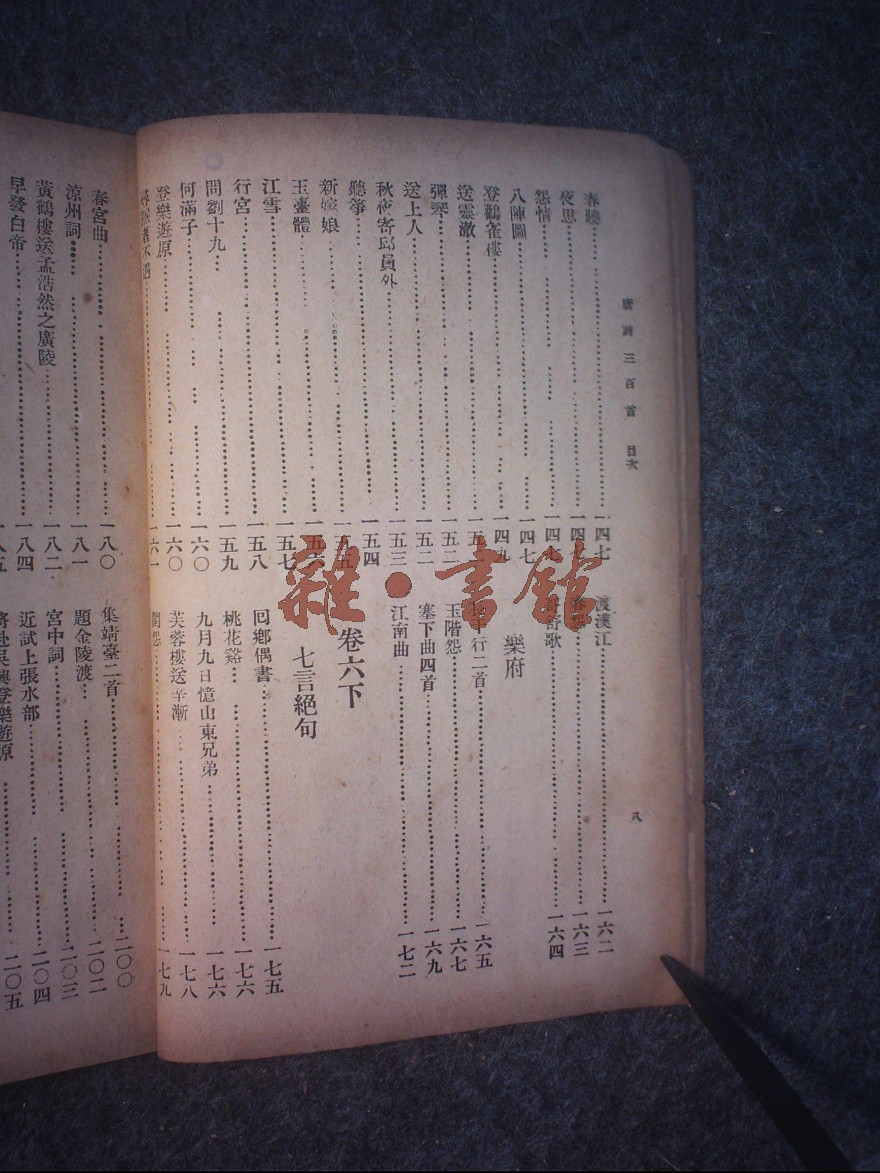 唐詩三百首 目次
八
春曉 一四七
夜思 一四七
怨情 一四七
八陣圖 一四七
登鸛雀樓 一四九
送靈澈 一五
彈琴 一五二
送上人 一五二
秋夜寄邱員外 一五三
聽箏 一五四
新嫁娘 一五五
玉臺體 一五六
江雪 一五七
行宮 一五八
問劉十九 一五九
何滿子 一六〇
登樂遊原 一六〇
尋隱者不遇 一六一
渡漢江 一六二
春怨 一六三
哥舒歌 一六四
樂府
長干行二首 一六五
玉階怨 一六七
塞下曲四首 一六九
江南曲 一七二
卷六下
七言絕句
囘鄉偶書 一七五
桃花谿 一七六
九月九日憶山東兄弟 一七六
芙蓉樓送辛漸 一七八
閨怨 一七九
春宮曲 一八〇
涼州詞 一八一
黃鶴樓送孟浩然之廣陵 一八二
早發白帝 一八四
一八五
集靖臺二首 二〇〇
題金陵渡 二〇二
宮中詞 二〇三
近試上張水部 二〇四
將赴吳興登樂遊原 二〇五
雜·書館